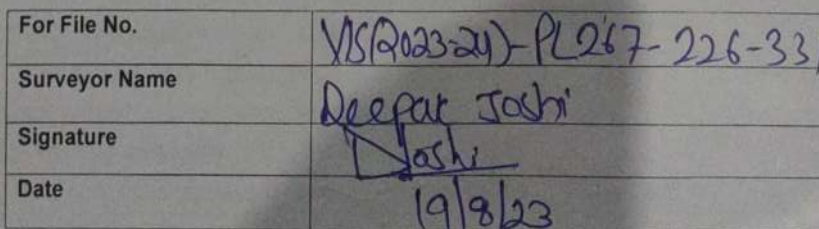 For File No. VIS(2023-24)-PL267-226-33
Surveyor Name Deepak Joshi
Signature DJoshi
Date 19/8/23